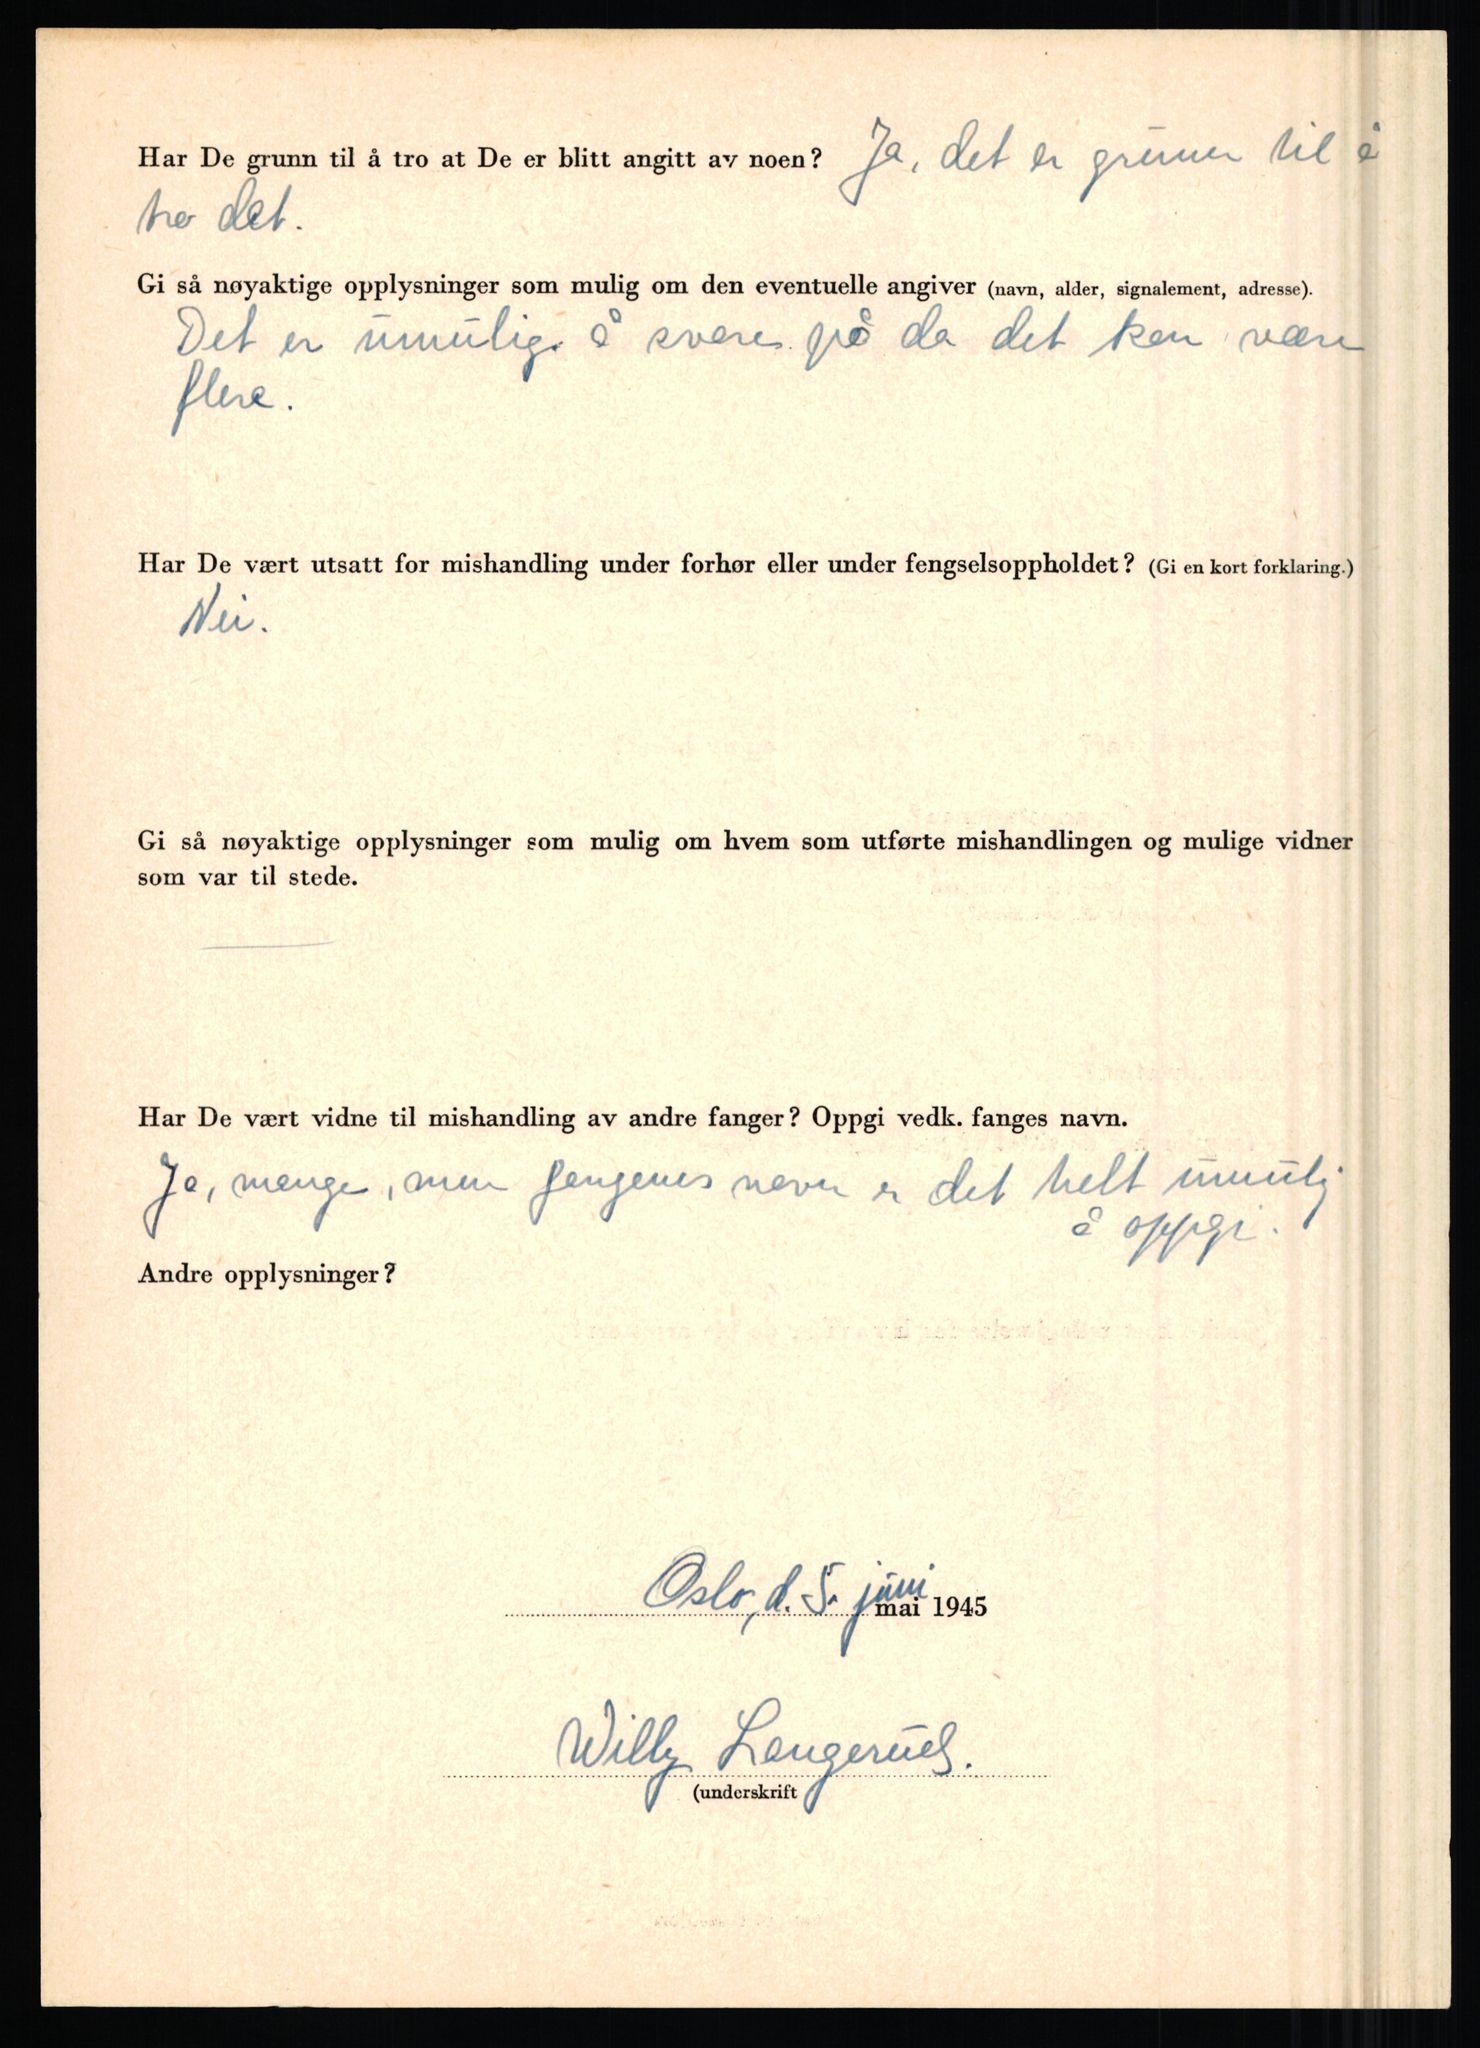 Har De grunn til å tro at De er blitt angitt av noen? Ja, det er grunn til å
tro det.
Gi så nøyaktige opplysninger som mulig om den eventuelle angiver (navn, alder, signalement, adresse).
Det er umulig å svare på da det kan være
flere.
Har De vært utsatt for mishandling under forhør eller under fengselsoppholdet? (Gi en kort forklaring.)
Nei.
Gi så nøyaktige opplysninger som mulig om hvem som utførte mishandlingen og mulige vidner
som var til stede.
Har De vært vidne til mishandling av andre fanger? Oppgi vedk. fanges navn.
Ja, mange, men fangenes navn er det helt umulig
å oppgi.
Andre opplysninger?
Oslo, d. 5. juni
mai 1945
Willy Langerud.
(underskrift